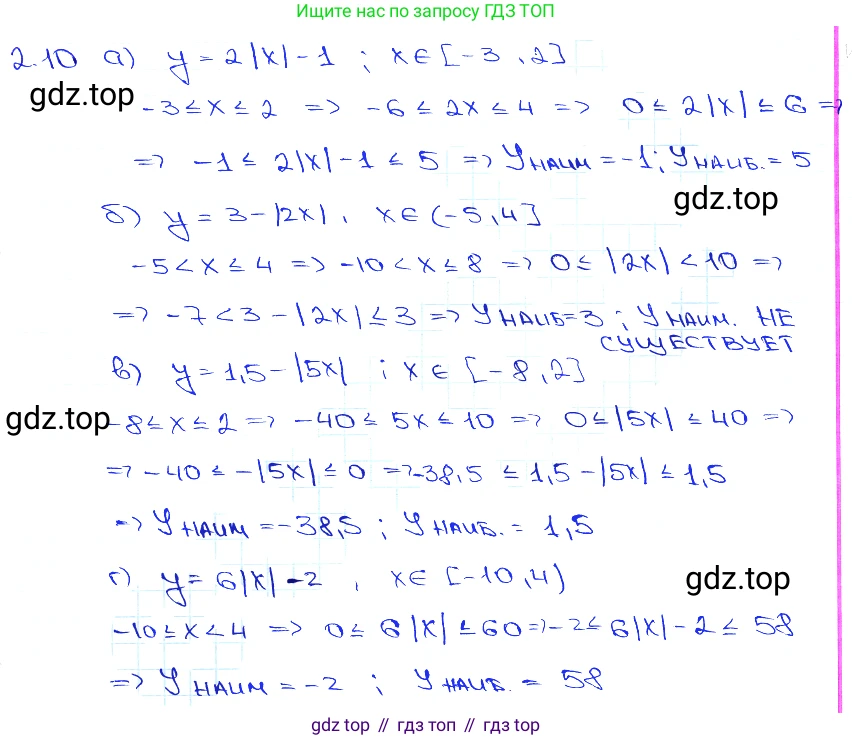 Ищите нас по запросу ГДЗ ТОП
2.10 а) y = 2|x| - 1 ; x ∈ [-3, 2]
gdz.top
-3 ≤ x ≤ 2 => -6 ≤ 2x ≤ 4 => 0 ≤ 2|x| ≤ 6 =>
=> -1 ≤ 2|x| - 1 ≤ 5 => y наим = -1; y наиб. = 5
gdz.top
б) y = 3 - |2x|, x ∈ (-5, 4]
-5 < x ≤ 4 => -10 < x ≤ 8 => 0 ≤ |2x| < 10 =>
=> -7 < 3 - |2x| ≤ 3 => y наиб = 3 ; y наим. НЕ
СУЩЕСТВУЕТ
в) y = 1,5 - |5x| ; x ∈ [-8, 2]
gdz.top
-8 ≤ x ≤ 2 => -40 ≤ 5x ≤ 10 => 0 ≤ |5x| ≤ 40 =>
=> -40 ≤ -|5x| ≤ 0 => -38,5 ≤ 1,5 - |5x| ≤ 1,5
=> y наим = -38,5 ; y наиб. = 1,5
г) y = 6|x| - 2 , x ∈ [-10, 4)
gdz.top
-10 ≤ x < 4 => 0 ≤ 6|x| ≤ 60 => -2 ≤ 6|x| - 2 ≤ 58
=> y наим = -2 ; y наиб. = 58
gdz top // гдз топ // gdz top